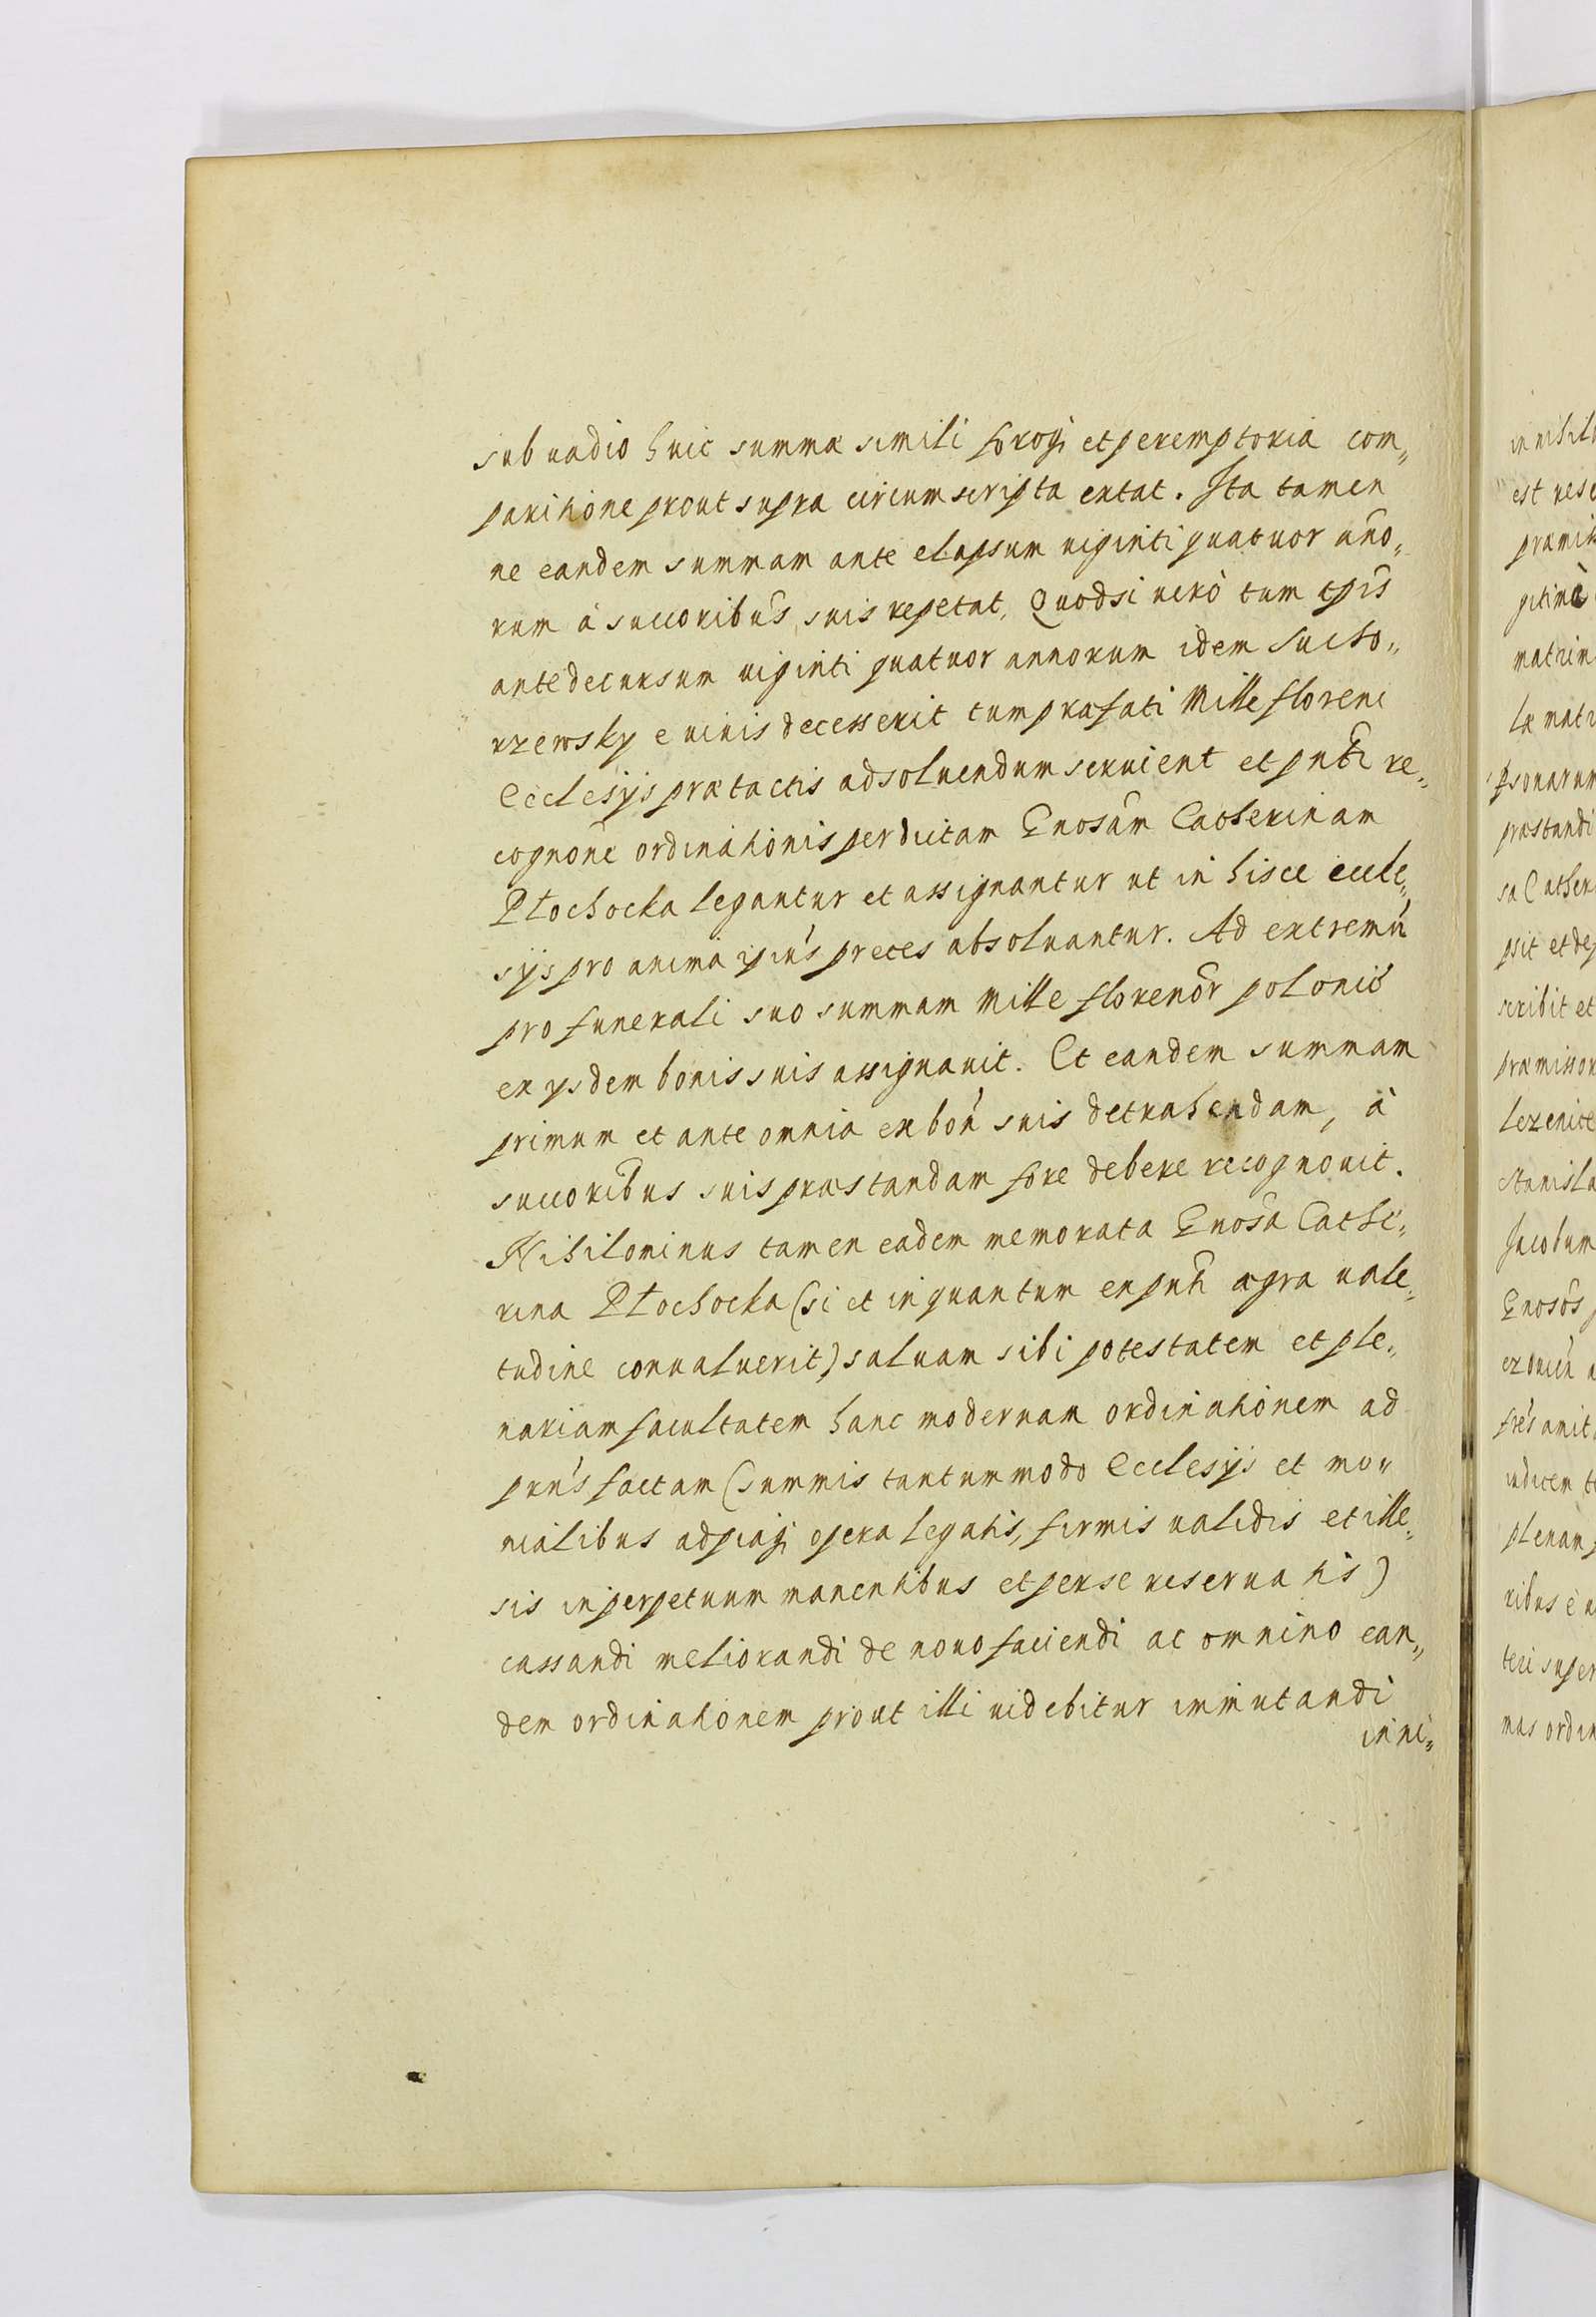 sub uadio huic summæ simili foroq; et peremptoria com„
paritione prout supra circumscripta extat. Ita tamen
ne eandem summam ante elapsum uiginti quatuor año„
rum à succoribus suis repetat, Quodsi uerò tum tpis
ante decursum uiginti quatuor annorum idem Sucho„
rzewsky e uiuis decesserit tum præfati Mille floreni
Ecclesijs prætactis adsoluendum seruient et pnti re„
cognone ordinationis per dictam Gnosam Catherinam
Płochocka legantur et assignantur ut in hisce eccle„
sijs pro anima ipius preces absoluantur. Ad extremũ
pro funerali suo summam Mille florenor polonic
ex ysdem bonis suis assignauit. Et eandem summam
primum et ante omnia ex bon suis detrahendam, à
succoribus suis præstandam fore debere recognouit.
Nihilominus tamen eadem memorata Gnosa Cathe„
rina Płochocka (si et inquantum ex pnti ægra uale„
tudine conualuerit) saluam sibi potestatem et ple„
nariam facultatem hanc modernam ordinationem ad
pruns factam (summis tantummodo Ecclesijs et mo„
nialibus ad piaq; opera legatis, firmis ualidis et ille„
sis in perpetuum manentibus et per se reseruatis)
cassandi meliorandi de nouo faciendi ac omnino ean„
dem ordinationem prout illi uidebitur immutandi
inni„
in nihilo
est rese
gitimè
matrim
læ matr
psonarum
præstandi
sa Cather
psit et de
scribit et
præmissor
Stanisla
Jacobum
Gnosos
plenam
ribus è u
teri super
mas ordin